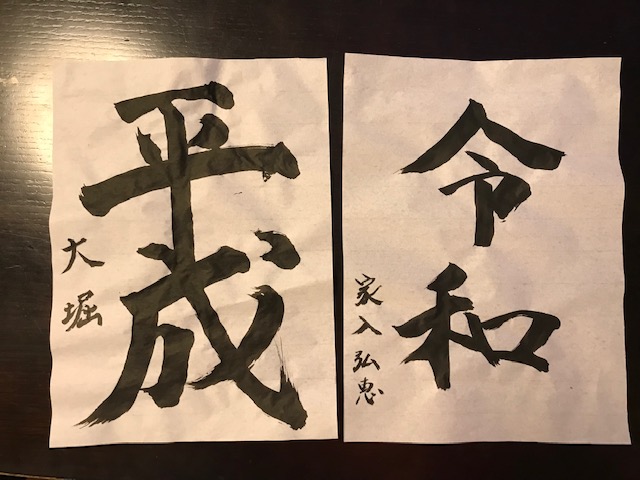 平成
大堀
令和
家入弘恵